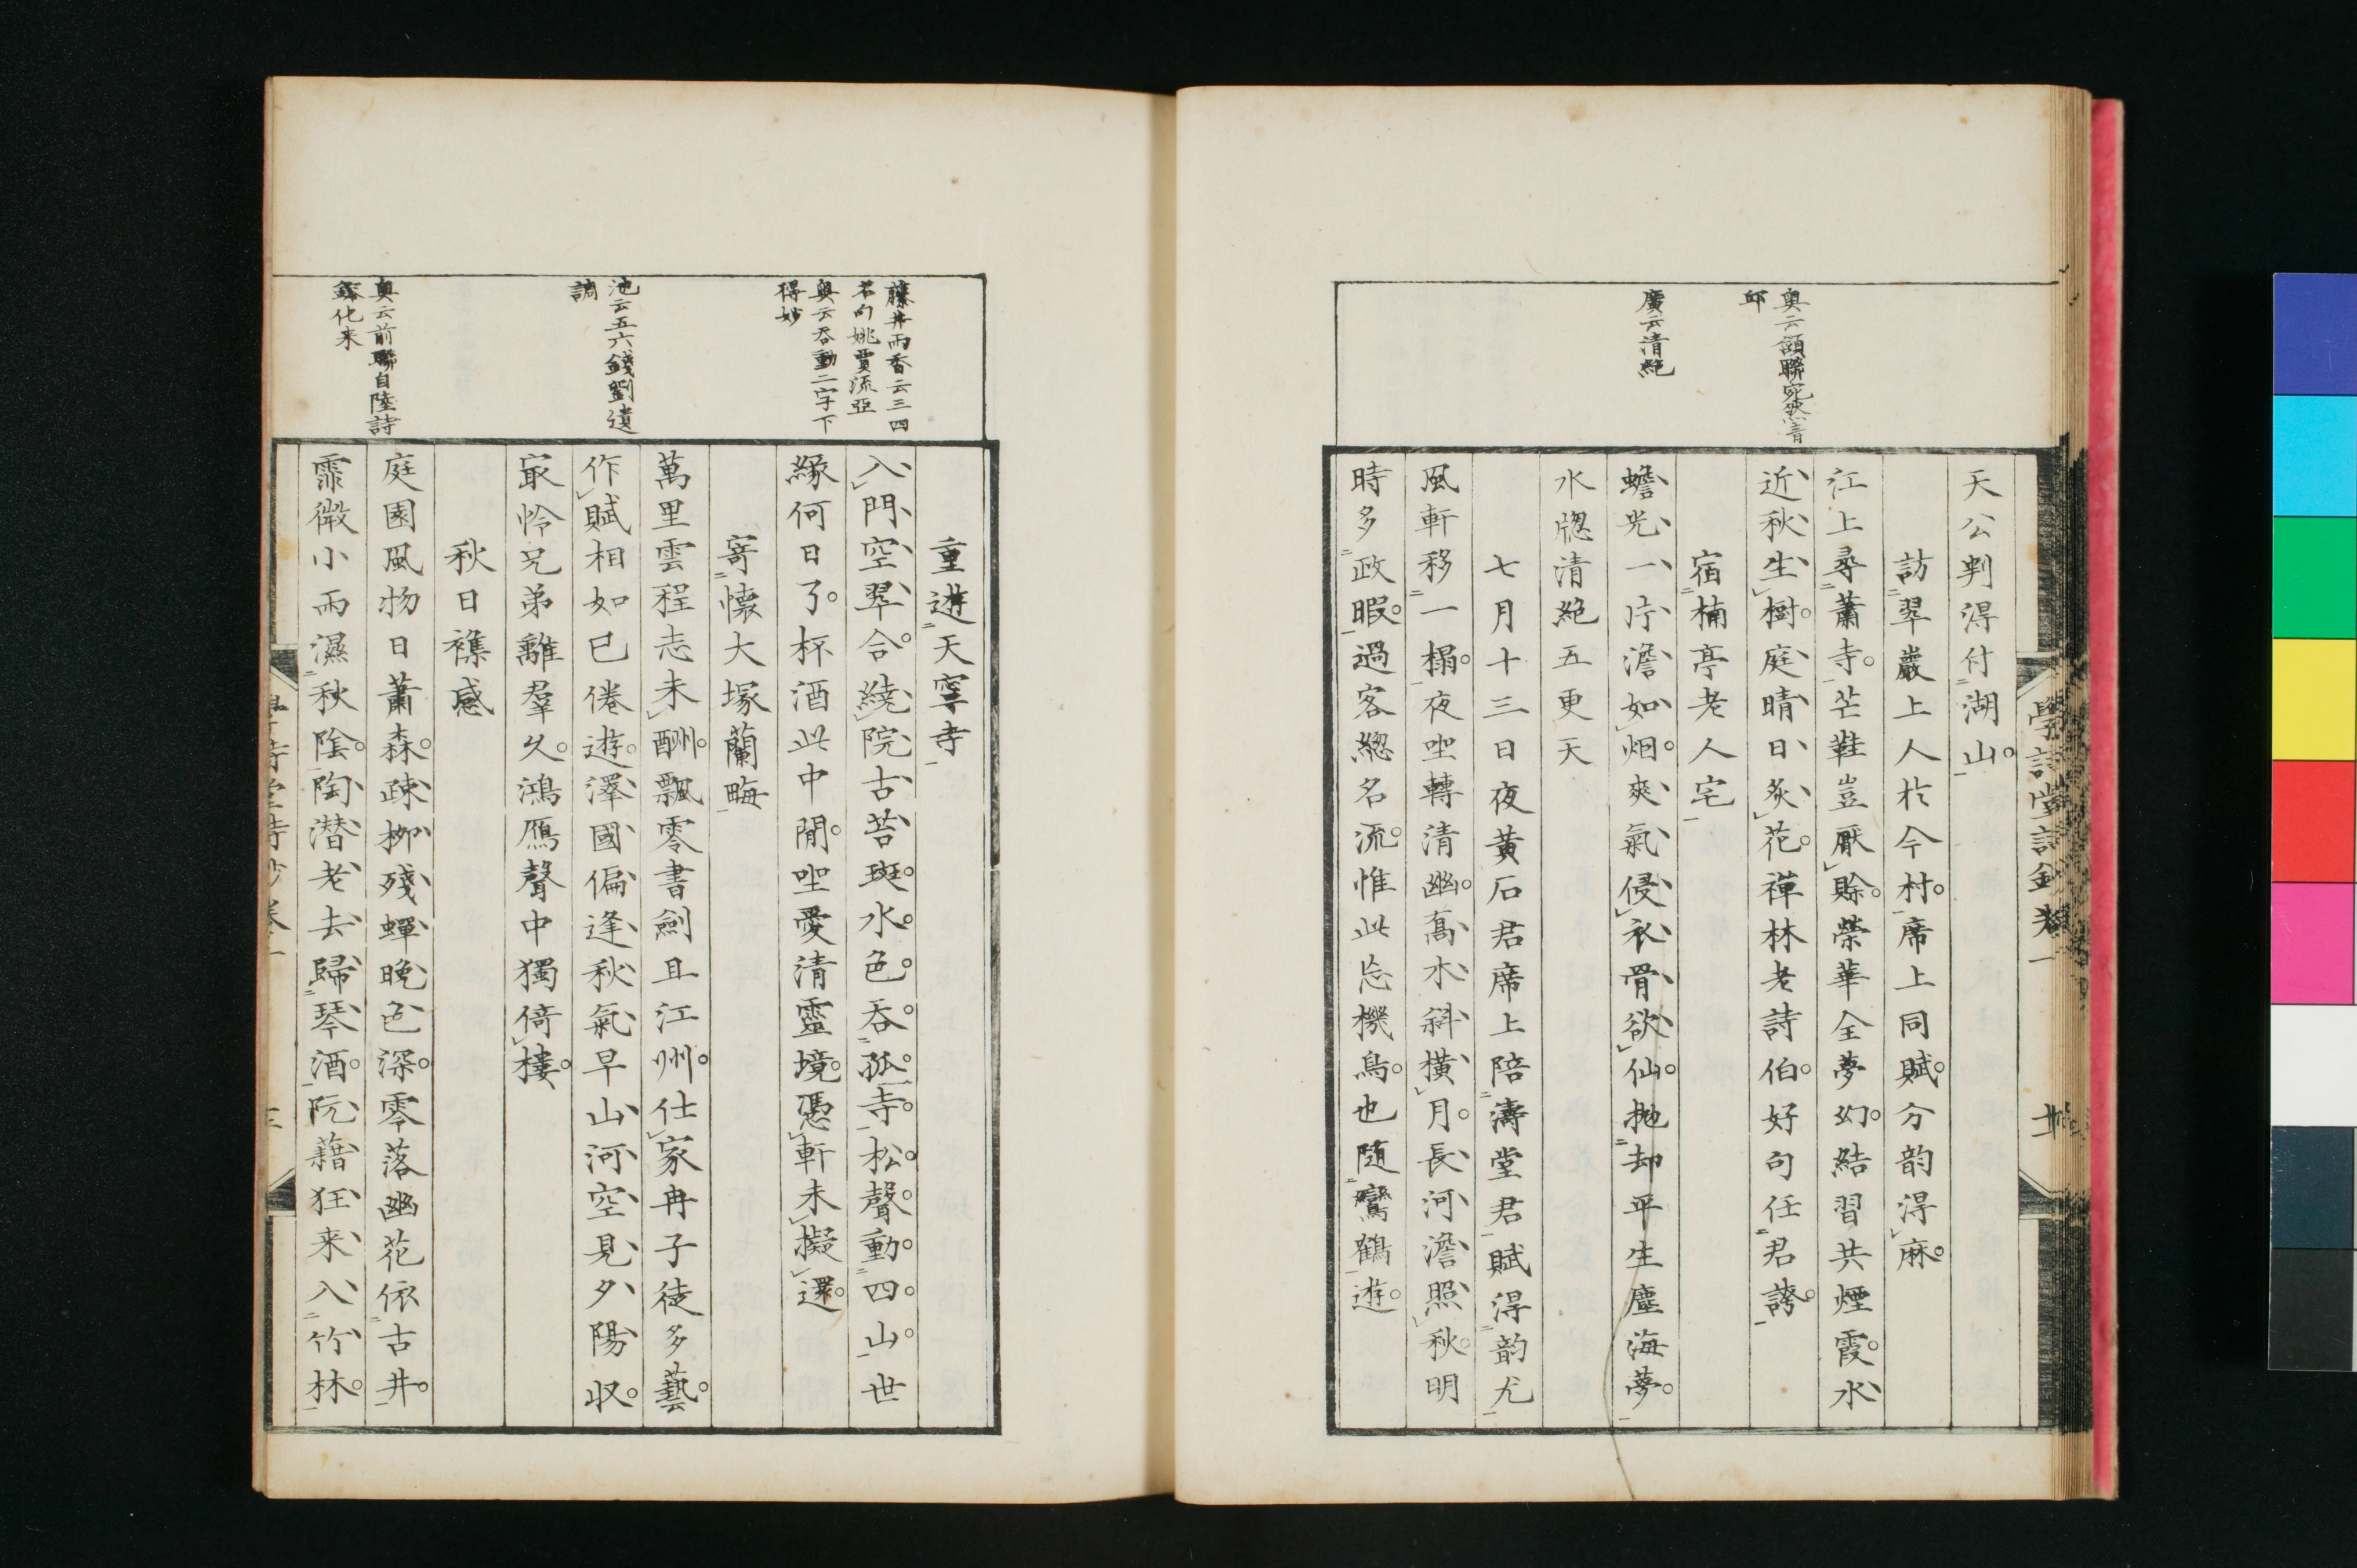 奥云頷聯宛然青
邱
廣云清絶
天公判得付湖山
訪翠巖上人於今村席上同賦分韵得麻
江上尋蕭寺芒鞋豈厭賒榮華全夢幻結習共煙霞水
近秋生樹庭晴日炙花禅林老詩伯好句任君誇
宿楠亭老人宅
蟾光一片澹如烟爽氣侵衣骨欲仙拋却平生塵海夢
水牕清絶五更天
七月十三日夜黃石君席上陪濤堂君賦得韵尤
風軒移一榻夜坐轉清幽髙木斜橫月長河澹照秋明
時多政暇過客總名流惟此忘機鳥也隨鸞鶴遊
學詩堂詩鈔卷一
藤井雨香云三四
名句姚賈流亞
奥云吞動二字下
得妙
池云五六錢劉遺
調
奥云前聯自陸詩
鎔化来
重遊天寧寺
入門空翠合繞院古苔斑水色吞孤寺松聲動四山世
緣何日了杯酒此中閒坐愛清靈境憑軒未擬還
寄懷大塚蘭畮
萬里雲程志未酬飄零書劍且江州仕家冉子徒多藝
作賦相如已倦遊澤國偏逢秋氣早山河空見夕陽収
冣怜兄弟離羣久鴻鴈聲中獨倚樓
秋日襍感
庭園風物日蕭森疎柳殘蟬晚色深零落幽花依古井
霏微小雨濕秋陰陶潜老去歸琴酒阮藉狂来入竹林